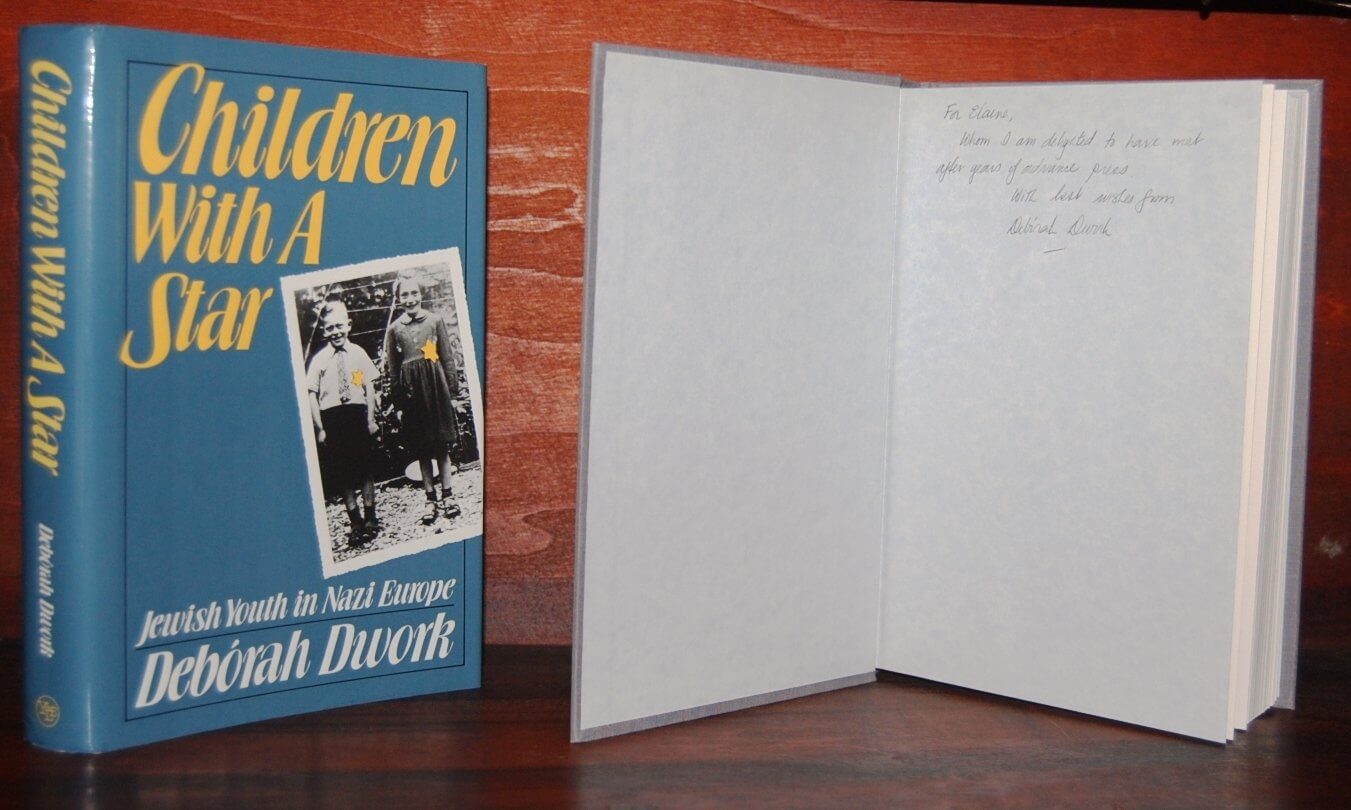 Children With A Star
Debórah Dwork
Children
With A
Star
Jewish Youth in Nazi Europe
Debórah Dwork
For Elaine,
Whom I am delighted to have met
after years of advance press.
With best wishes from
Debórah Dwork